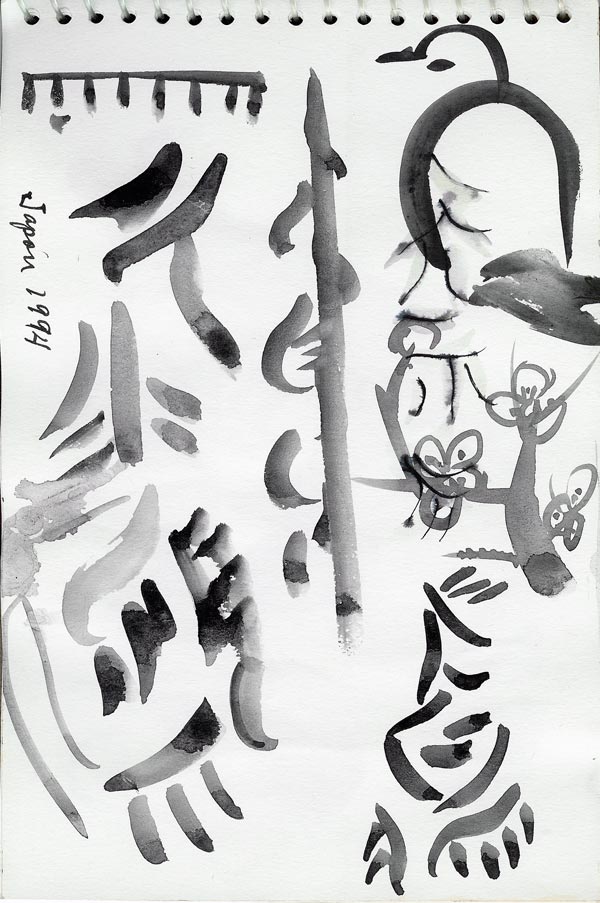 Japón 1994